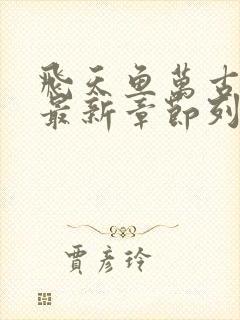 飛天魚萬古
最新章節列
賈彥玲